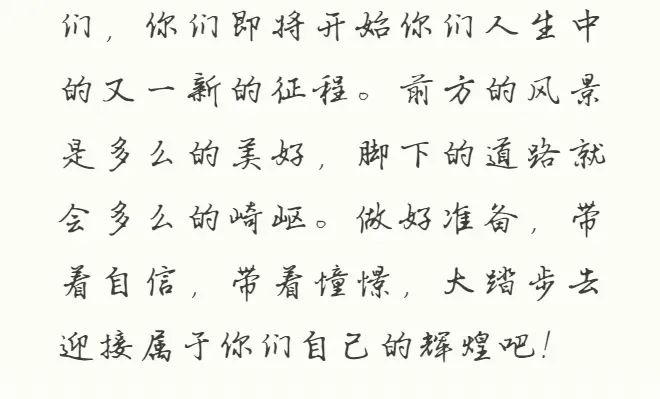 们，你们即将开始你们人生中
的又一新的征程。前方的风景
是多么的美好，脚下的道路就
会多么的崎岖。做好准备，带
着自信，带着憧憬，大踏步去
迎接属于你们自己的辉煌吧！